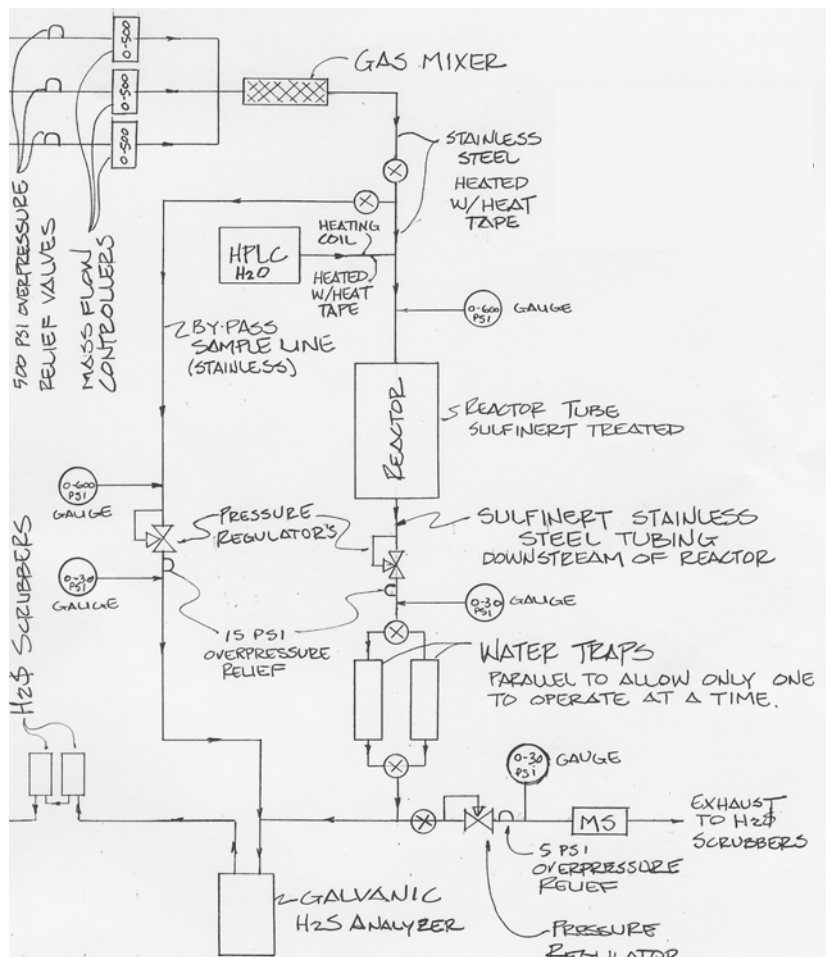 0-500
0-500
0-500
GAS MIXER
STAINLESS
STEEL
HEATED
W/HEAT
TAPE
500 PSI OVERPRESSURE
RELIEF VALVES
MASS FLOW
CONTROLLERS
HPLC
H2O
HEATING
COIL
HEATED
W/HEAT
TAPE
0-600
PSI
GAUGE
BY-PASS
SAMPLE LINE
(STAINLESS)
REACTOR
REACTOR TUBE
SULFINERT TREATED
0-600
PSI
GAUGE
PRESSURE
REGULATOR'S
SULFINERT STAINLESS
STEEL TUBING
DOWNSTREAM OF REACTOR
0-30
PSI
GAUGE
0-30
PSI
GAUGE
15 PSI
OVERPRESSURE
RELIEF
H2$ SCRUBBERS
WATER TRAPS
PARALLEL TO ALLOW ONLY ONE
TO OPERATE AT A TIME.
0-30
PSI
GAUGE
MS
EXHAUST
TO H2$
SCRUBBERS
5 PSI
OVERPRESSURE
RELIEF
GALVANIC
H2S ANALYZER
PRESSURE
REGULATOR